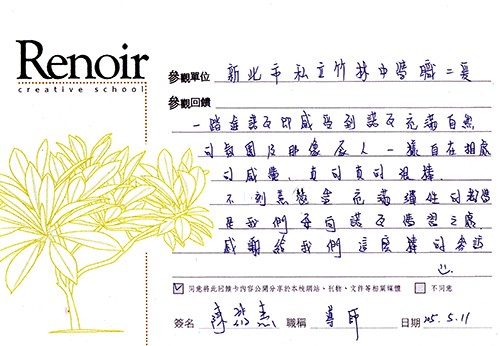 Renoir
creative school
參觀單位 新北市私立竹林中學 職二憂
參觀回饋
一踏進諾瓦即感受到諾瓦充滿自然
的氛圍及即像家人一樣自在相處
的感覺,真的真的很棒.
不刻意教學 充滿彈性的教學
是我們要向諾瓦學習之處
感謝給我們這麼棒的參訪
同意將此回饋卡內容公開分享於本校網站、刊物、文件等相關媒體 不同意
簽名 職稱 導師 日期 25.5.11